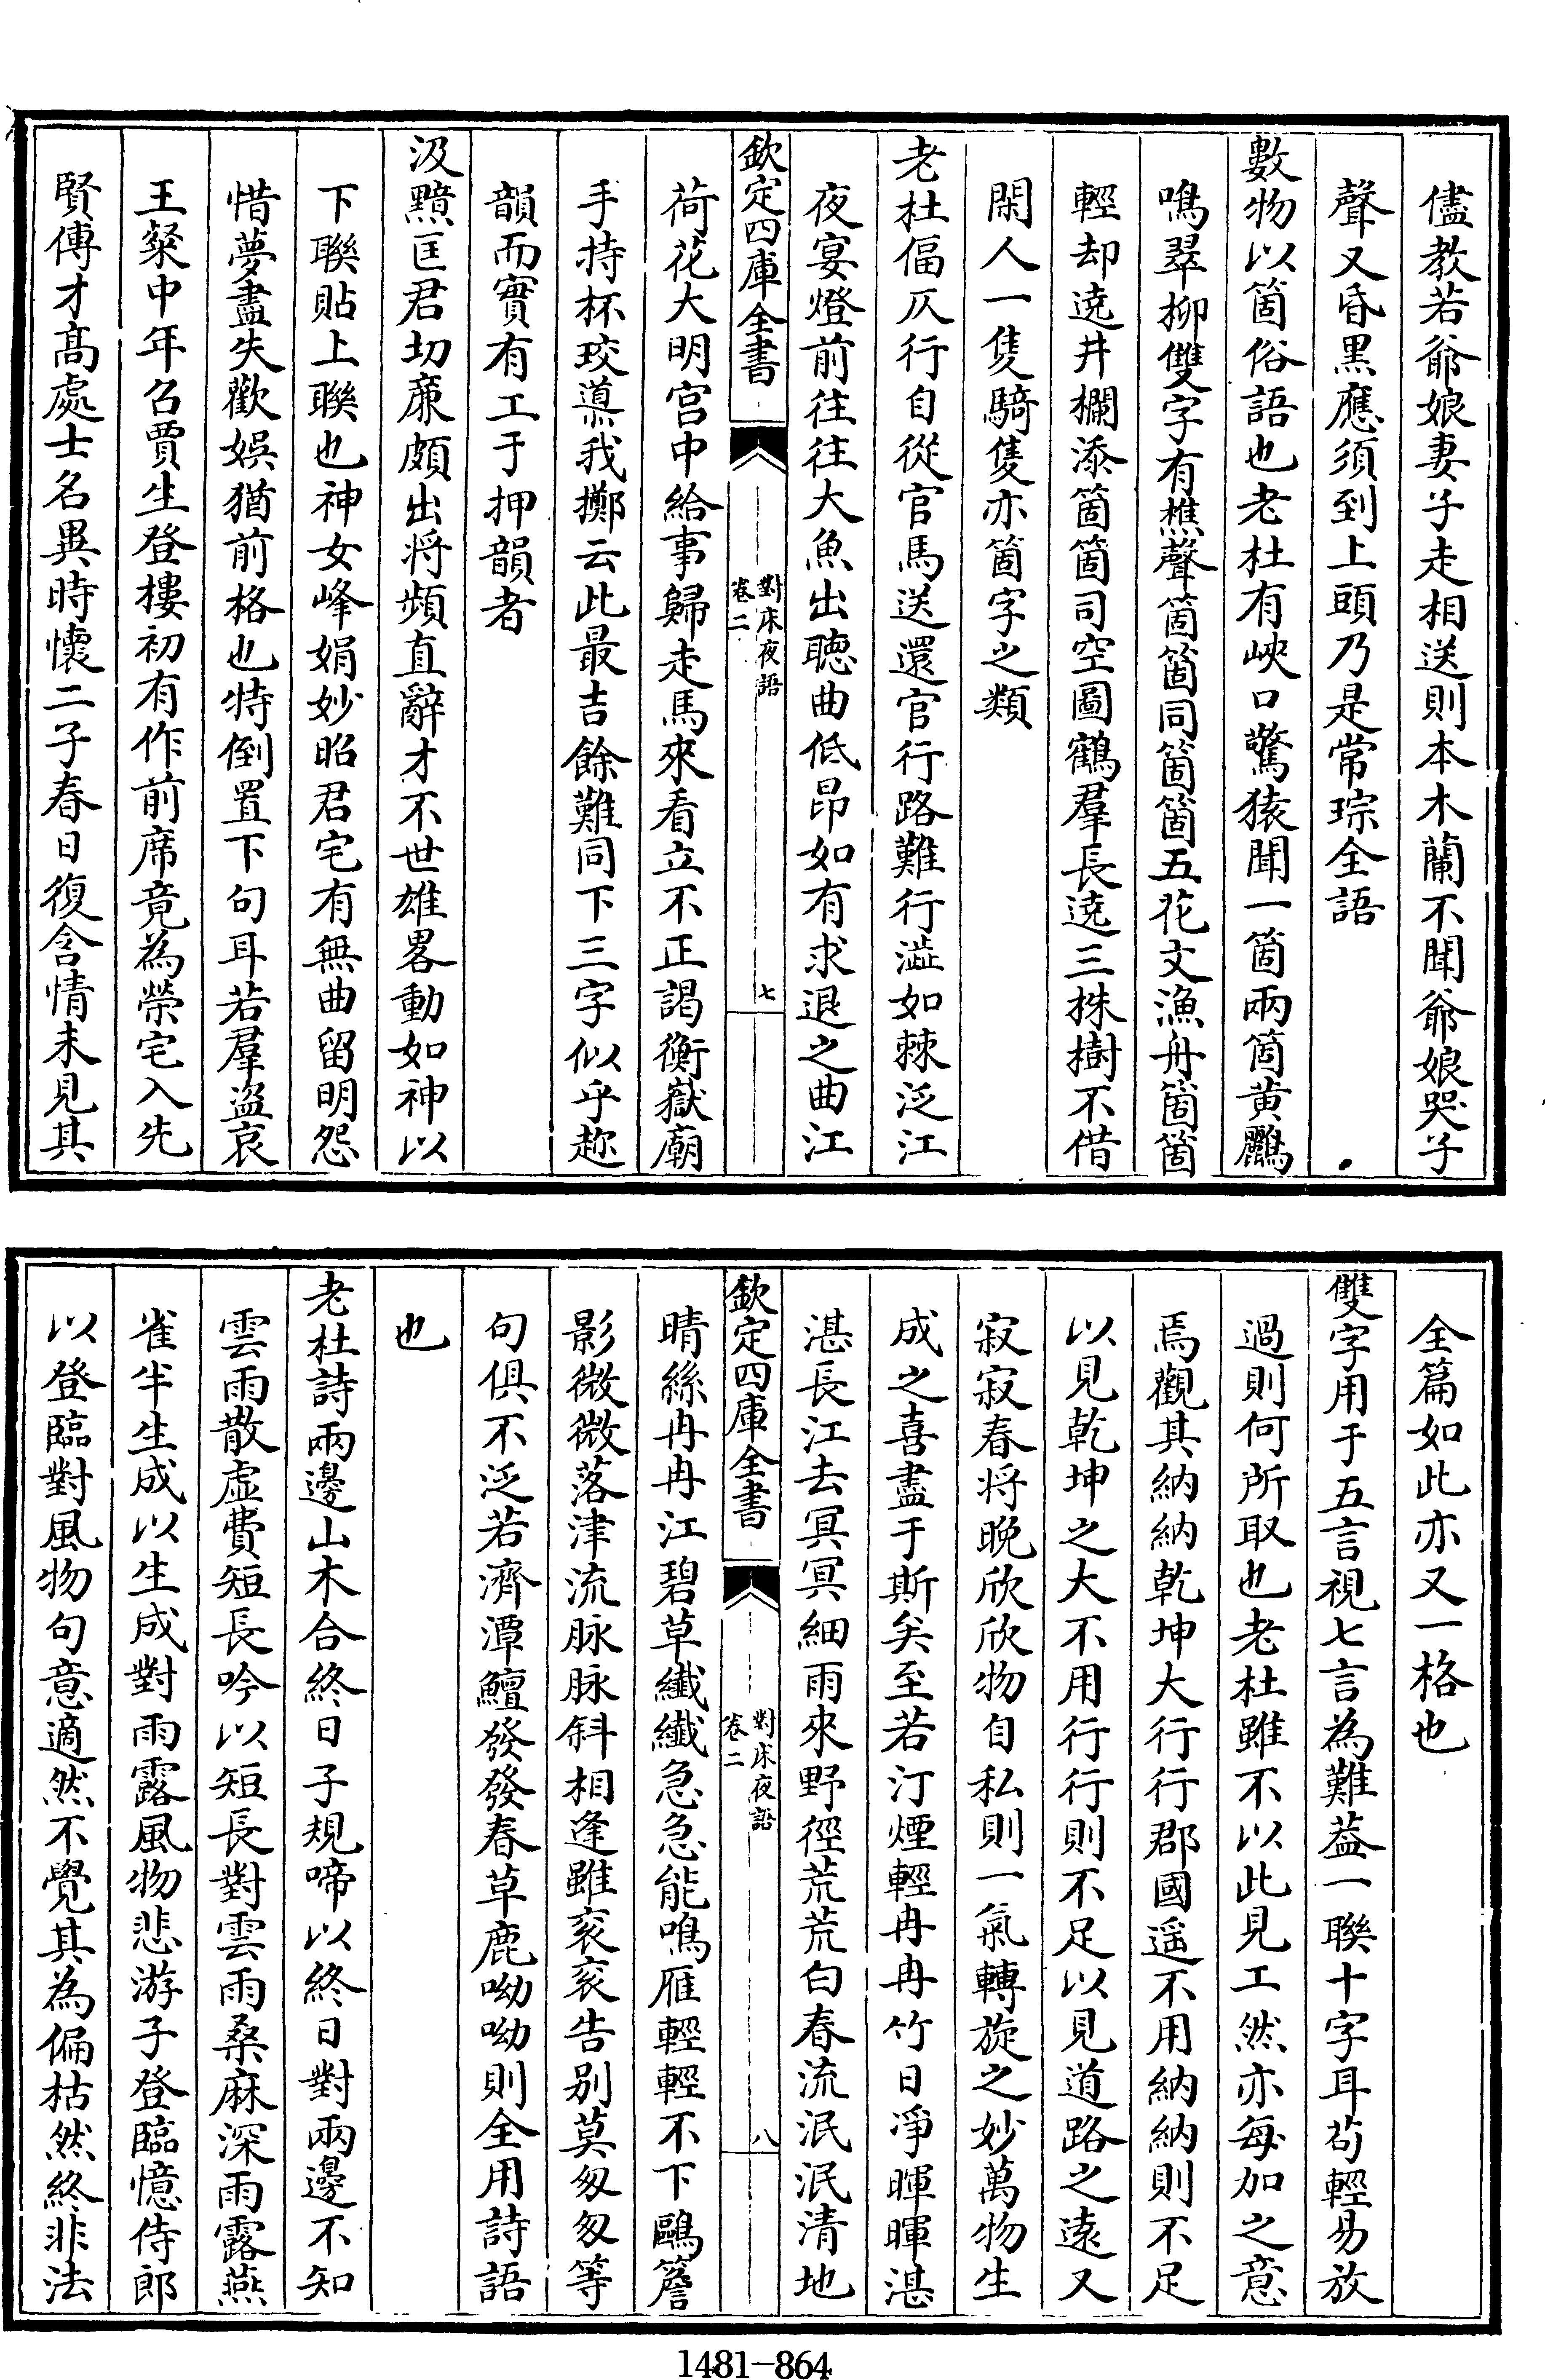 儘教若爺娘妻子走相送則本木蘭不聞爺娘哭子
聲又昏黑應須到上頭乃是常琮全語
數物以箇俗語也老杜有峽口驚猿聞一箇兩箇黄鸝
鳴翠柳雙字有樵聲箇箇同箇箇五花文漁舟箇箇
輕却遶井欄添箇箇司空圖鶴羣長遶三株樹不借
閑人一隻騎隻亦箇字之類
老杜偪仄行自從官馬送還官行路難行澁如棘泛江
夜宴燈前往往大魚出聴曲低昂如有求退之曲江
欽定四庫全書
對床夜語
卷二
七
荷花大明宫中給事歸走馬來看立不正謁衡嶽廟
手持杯珓導我擲云此最吉餘難同下三字似乎趂
韻而實有工于押韻者
汲黯匡君切廉頗出將頻直辭才不世雄畧動如神以
下聨貼上聨也神女峰娟妙昭君宅有無曲留明怨
惜夢盡失歡娛猶前格也特倒置下句耳若羣盗哀
王粲中年召賈生登樓初有作前席竟為榮宅入先
賢傳才髙處士名異時懷二子春日復含情未見其
全篇如此亦又一格也
雙字用于五言視七言為難葢一聨十字耳茍輕易放
過則何所取也老杜雖不以此見工然亦每加之意
焉觀其納納乾坤大行行郡國遥不用納納則不足
以見乾坤之大不用行行則不足以見道路之逺又
寂寂春將晚欣欣物自私則一氣轉旋之妙萬物生
成之喜盡于斯矣至若汀煙輕冉冉竹日凈暉暉湛
湛長江去冥冥細雨來野徑荒荒白春流泯泯清地
欽定四庫全書
對床夜語
卷二
八
晴絲冉冉江碧草纎纎急急能鳴雁輕輕不下鷗簷
影微微落津流脉脉斜相逢雖衮衮告别莫匆匆等
句俱不泛若濟潭鱣發發春草鹿呦呦則全用詩語
也
老杜詩兩邊山木合終日子規啼以終日對兩邊不知
雲雨散虚費短長吟以短長對雲雨桑麻深雨露燕
雀半生成以生成對雨露風物悲游子登臨憶侍郎
以登臨對風物句意適然不覺其為偏枯然終非法
1481-864